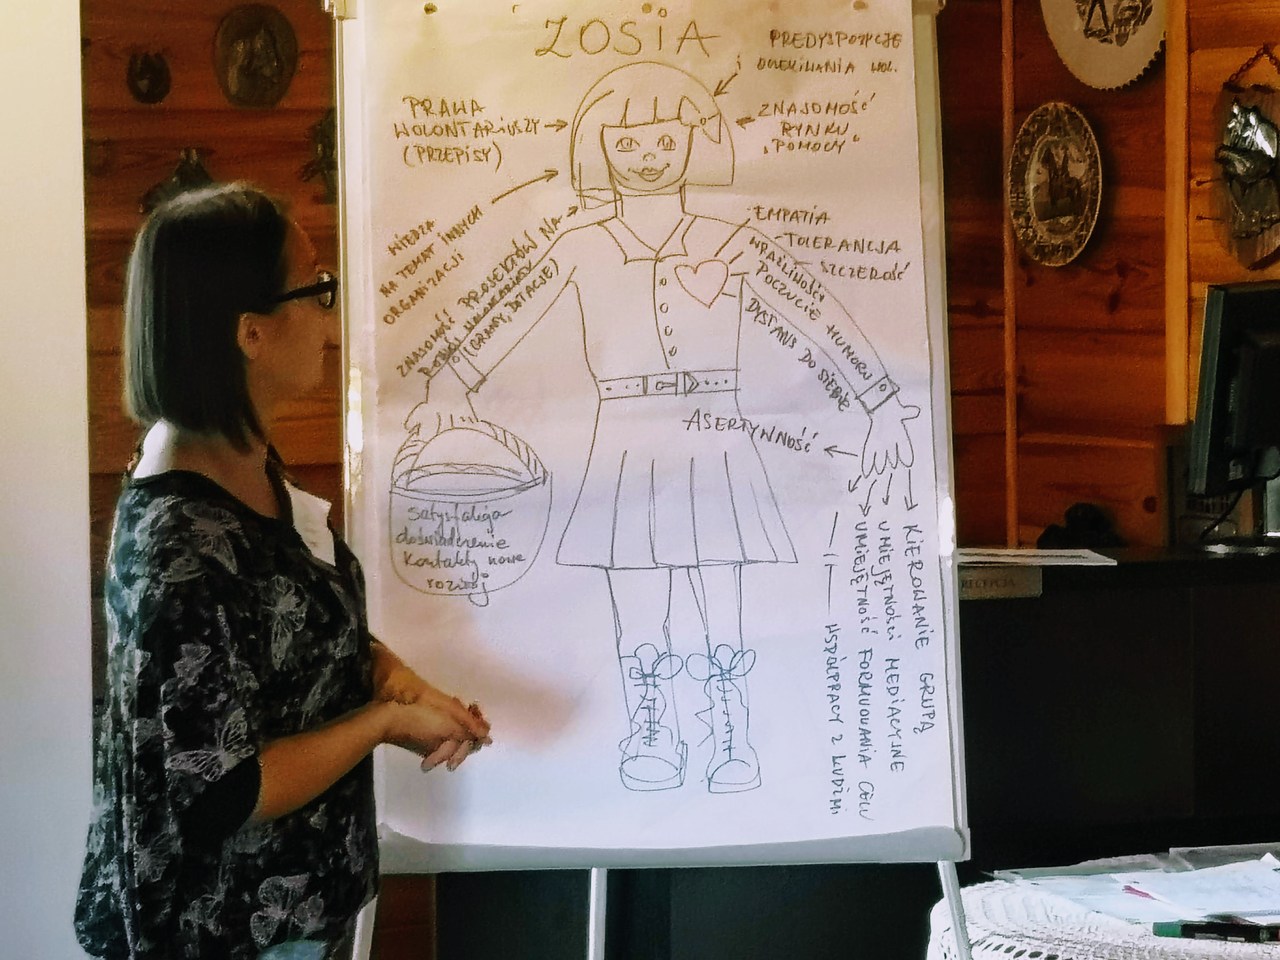 ZOSIA
PREDYSPOZYCJE
i OCZEKIWANIA WOL.
PRAWA
WOLONTARIUSZY
(PRZEPISY)
ZNAJOMOŚĆ
RYNKU
"POMOCY"
WIEDZA
NA TEMAT INNYCH
ORGANIZACJI
ZNAJOMOŚĆ PROJEKTÓW NA
(GRANTY, DOTACJE)
EMPATIA
TOLERANCJA
SZCZEROŚĆ
WRAŻLIWOŚĆ
POCZUCIE HUMORU
DYSTANS DO SIEBIE
ASERTYWNOŚĆ
satysfakcja
doświadczenie
kontakty nowe
rozwój
KIEROWANIE GRUPĄ
UMIEJĘTNOŚCI MEDIACYJNE
UMIEJĘTNOŚĆ FORMUŁOWANIA CELU
— || — WSPÓŁPRACY Z LUDŹMI
RECEPCJA